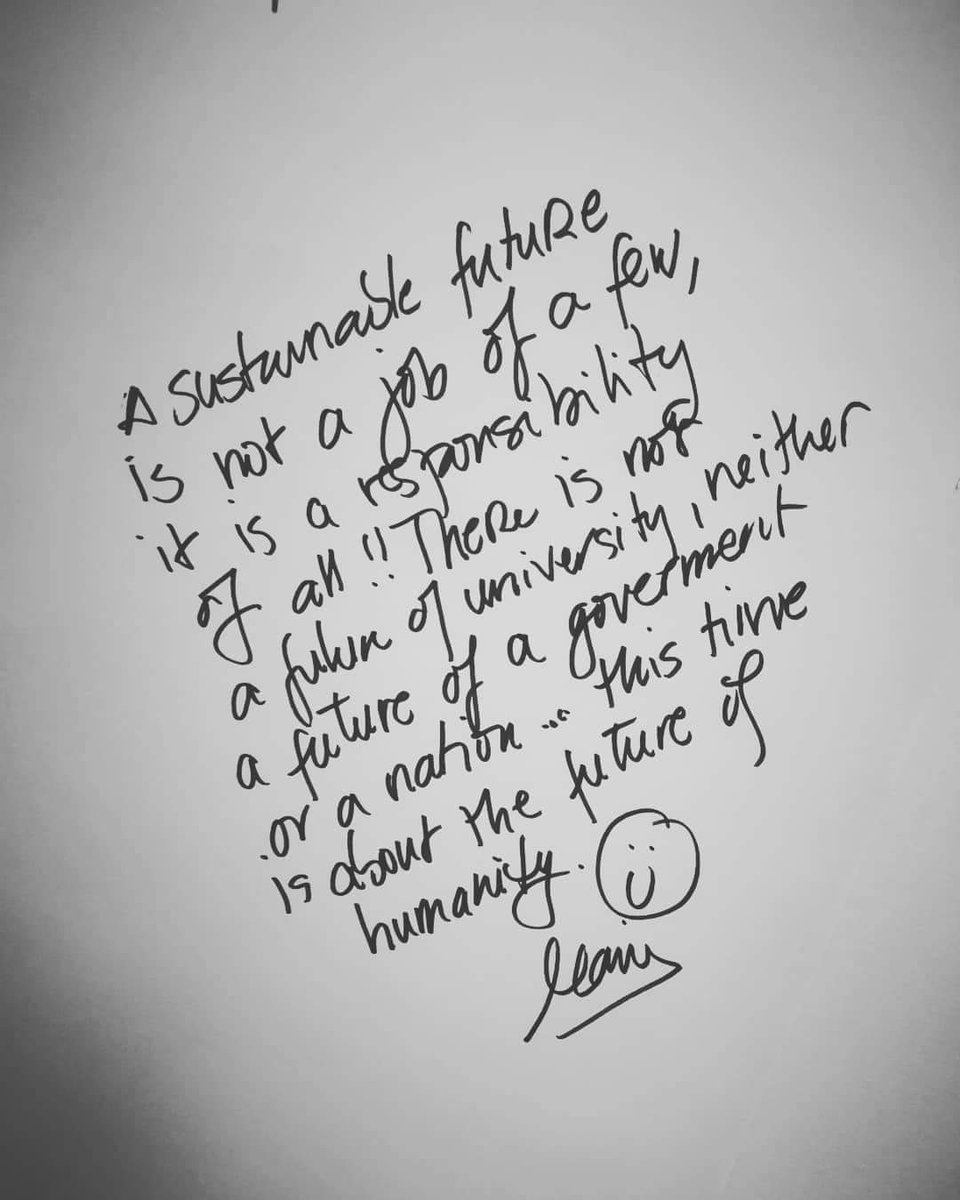 A sustainable future
is not a job of a few,
it is a responsibility
of all!! There is not
a future of university, neither
a future of a goverment
or a nation... this time
is about the future of
humanity.